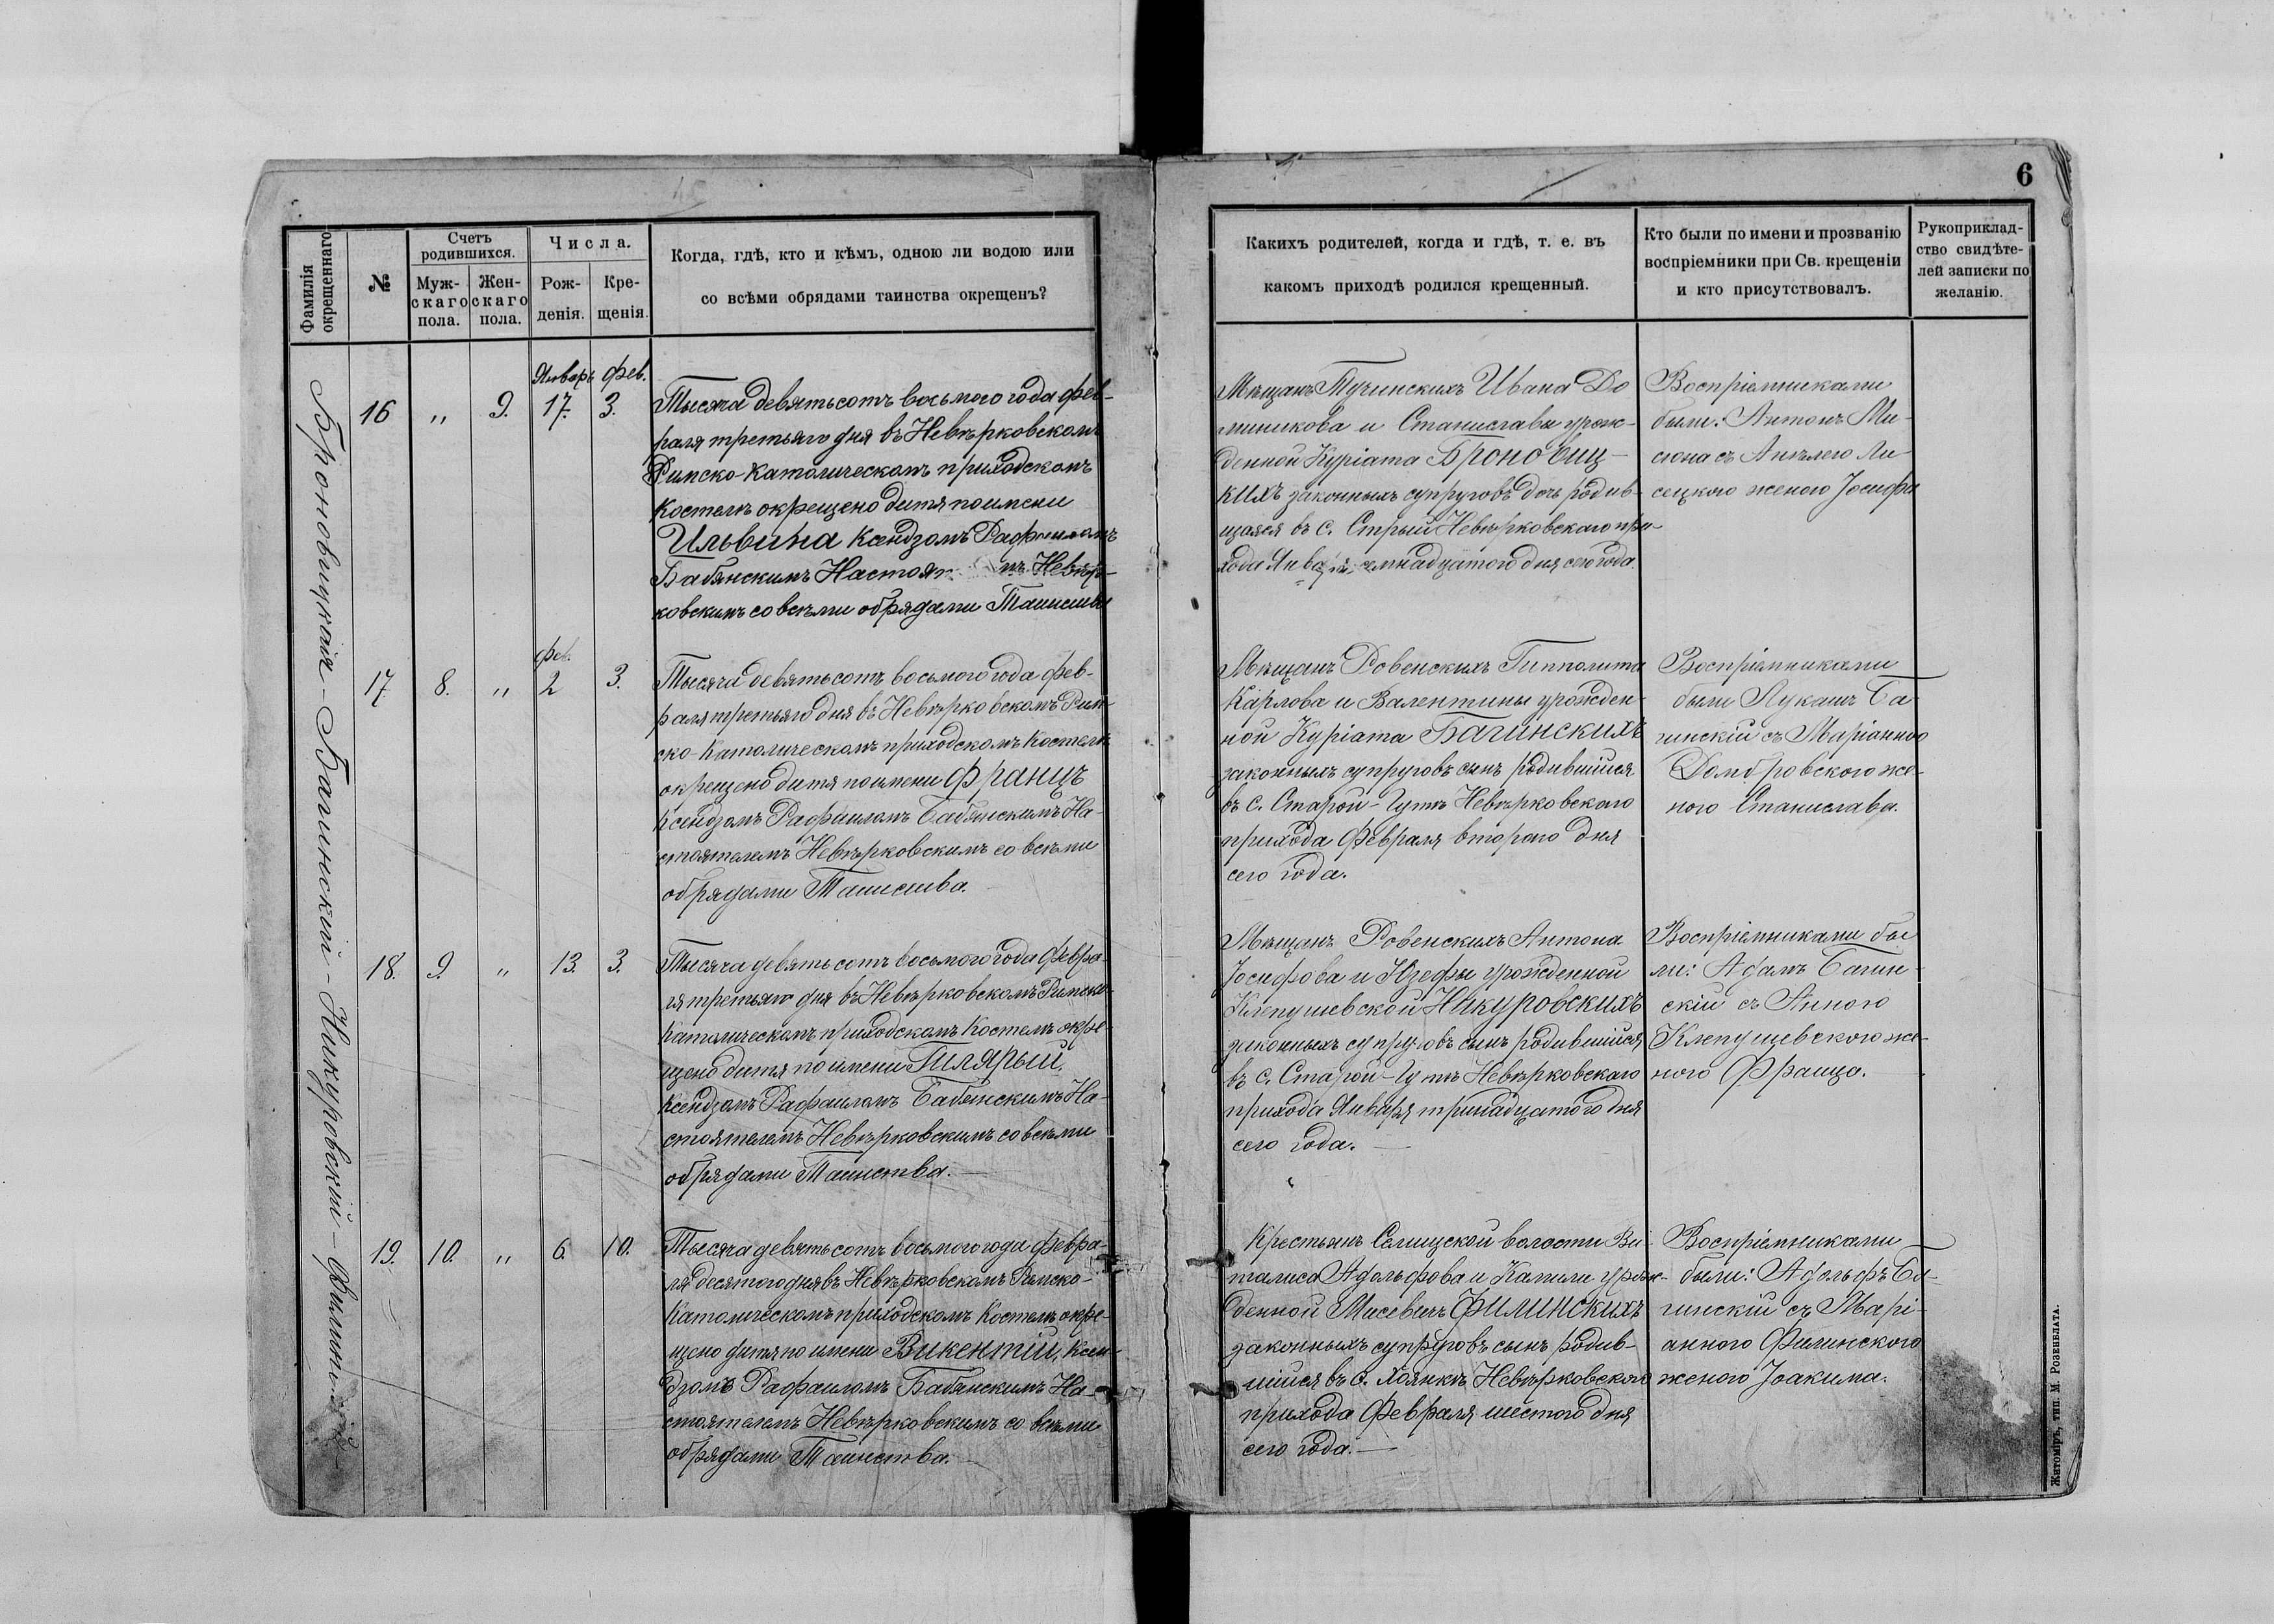 6
Фамилія окрещеннаго
№
Счетъ родившихся.
Муж-скаго пола.
Жен-скаго пола.
Числа.
Рож-денія.
Кре-щенія.
Когда, гдѣ, кто и кѣмъ, одною ли водою или
со всѣми обрядами таинства окрещенъ?
Какихъ родителей, когда и гдѣ, т. е. въ
какомъ приходѣ родился крещенный.
Кто были по имени и прозванію
воспріемники при Св. крещеніи
и кто присутствовалъ.
Рукоприклад-
ство свидѣте-
лей записки по
желанію.
Броновицкая – Багинскій – Никуровскій –
16 " 9. Январь 17. фев. 3.
Тысяча девятьсотъ восьмого года фев-
раля третьяго дня въ Невѣрковскомъ
Римско-Католическомъ приходскомъ
Костелѣ окрещено дитя по имени
Ильвина Ксендзомъ Рафаиломъ
Бабянскимъ Невѣр-
ковскимъ со всѣми обрядами Таинства
Мѣщанъ Тучинскихъ Ивана До
миникова и Станиславы урож-
денной Куріата Бронovиц-
кихъ законныхъ супруговъ дочь родив-
щаяся въ с. Стрый Невѣрковскаго при-
хода Января семнадцатого дня сего года
Воспріемниками
были: Антонъ Ми-
сюна съ Анѣлею Ли-
сецкою женою Іосифа
17 8. " фев. 2 3.
Тысяча девятьсотъ восьмого года фев-
раля третьяго дня въ Невѣрковскомъ Рим-
ско-Католическомъ приходскомъ Костелѣ
окрещено дитя по имени Францъ
Ксендзомъ Рафаиломъ Бабянскимъ На-
стоятелемъ Невѣрковскимъ со всѣми
обрядами Таинства.
Мѣщанъ Ровенскихъ Гипполита
Карлова и Валентины урожден-
ной Куріата Багинскихъ
законныхъ супруговъ сынъ родившійся
въ с. Старой-Гутѣ Невѣрковского
прихода Февраля второго дня
сего года.
Воспріемниками
были Лукашъ Ба-
гинскій съ Маріанною
Домбровского же-
ною Станислава.
18. 9. " 13. 3.
Тысяча девятьсотъ восьмого года Февра-
ля третьяго дня въ Невѣрковскомъ Римско-
Католическомъ приходскомъ Костелѣ окре-
щено дитя по имени Гилярый,
Ксендзомъ Рафаиломъ Бабянскимъ На-
стоятелемъ Невѣрковскимъ со всѣми
обрядами Таинства.
Мѣщанъ Ровенскихъ Антона
Іосифова и Юзефы урожденной
Клепушевской Никуровскихъ
законныхъ супруговъ сынъ родившійся
въ с. Старой-Гутѣ Невѣрковскаго
прихода Января тринадцатого дня
сего года.
Воспріемниками бы
ли: Адамъ Багин-
скій съ Анною
Клепушевского же-
ною Франца.
19. 10. " 6. 10.
Тысяча девятьсотъ восьмого года Февра-
ля десятого дня въ Невѣрковскомъ Римско-
Католическомъ приходскомъ Костелѣ окре-
щено дитя по имени Викентій, Ксен-
дзомъ Рафаиломъ Бабянскимъ На-
стоятелемъ Невѣрковскимъ со всѣми
обрядами Таинства.
Крестьянъ Селищской волости Ви-
талиса Адольфова и Камили урож-
денной Мисевичъ Филинскихъ
законныхъ супруговъ сынъ родив-
шійся въ с. Хоянкѣ Невѣрковского
прихода Февраля шестого дня
сего года.
Воспріемниками
были: Адольфъ Ба-
гинскій съ Марі-
анною Филинского
женою Іоакима.
Житоміръ, тип. М. Розенблата.